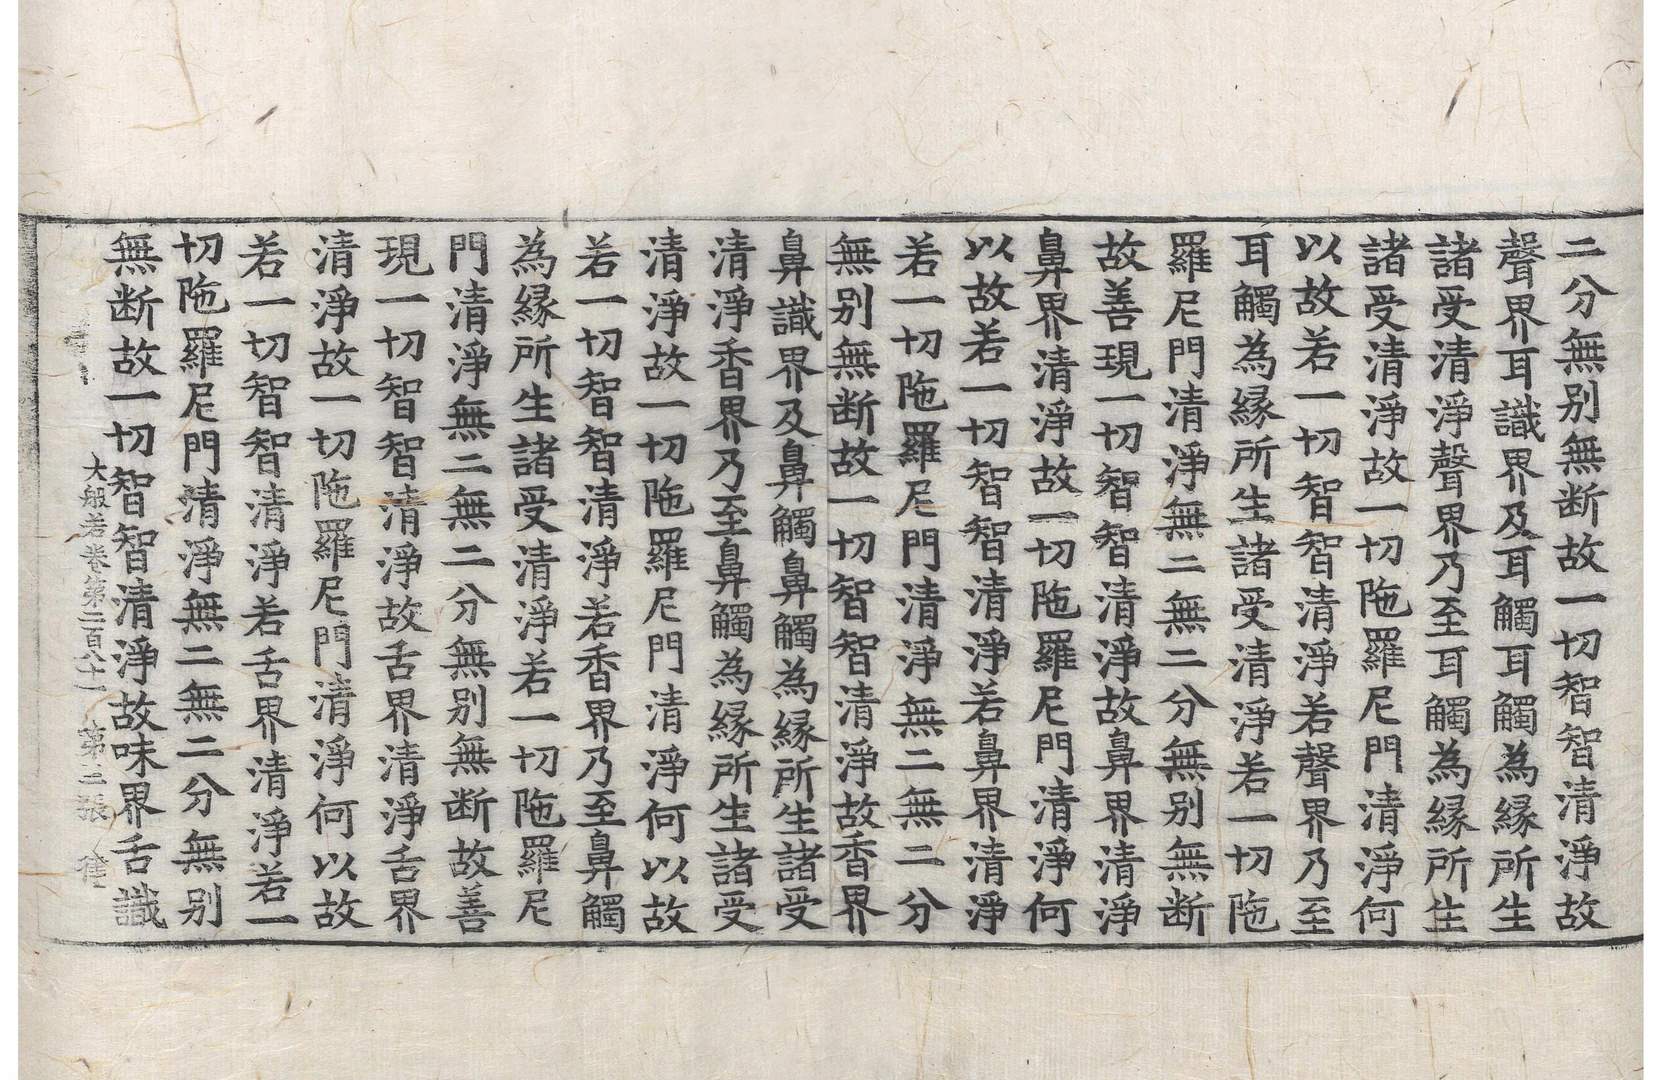 二分無别無断故一切智智清淨故
聲界耳識界及耳觸耳觸為縁所生
諸受清淨聲界乃至耳觸為縁所生
諸受清淨故一切陁羅尼門清淨何
以故若一切智智清淨若聲界乃至
耳觸為縁所生諸受清淨若一切陁
羅尼門清淨無二無二分無别無断
故善現一切智智清淨故鼻界清淨
鼻界清淨故一切陁羅尼門清淨何
以故若一切智智清淨若鼻界清淨
若一切陁羅尼門清淨無二無二分
無别無断故一切智智清淨故香界
鼻識界及鼻觸鼻觸為縁所生諸受
清淨香界乃至鼻觸為縁所生諸受
清淨故一切陁羅尼門清淨何以故
若一切智智清淨若香界乃至鼻觸
為縁所生諸受清淨若一切陁羅尼
門清淨無二無二分無别無断故善
現一切智智清淨故舌界清淨舌界
清淨故一切陁羅尼門清淨何以故
若一切智智清淨若舌界清淨若一
切陁羅尼門清淨無二無二分無别
無断故一切智智清淨故味界舌識
大般若卷第二百八十一 第三張 律